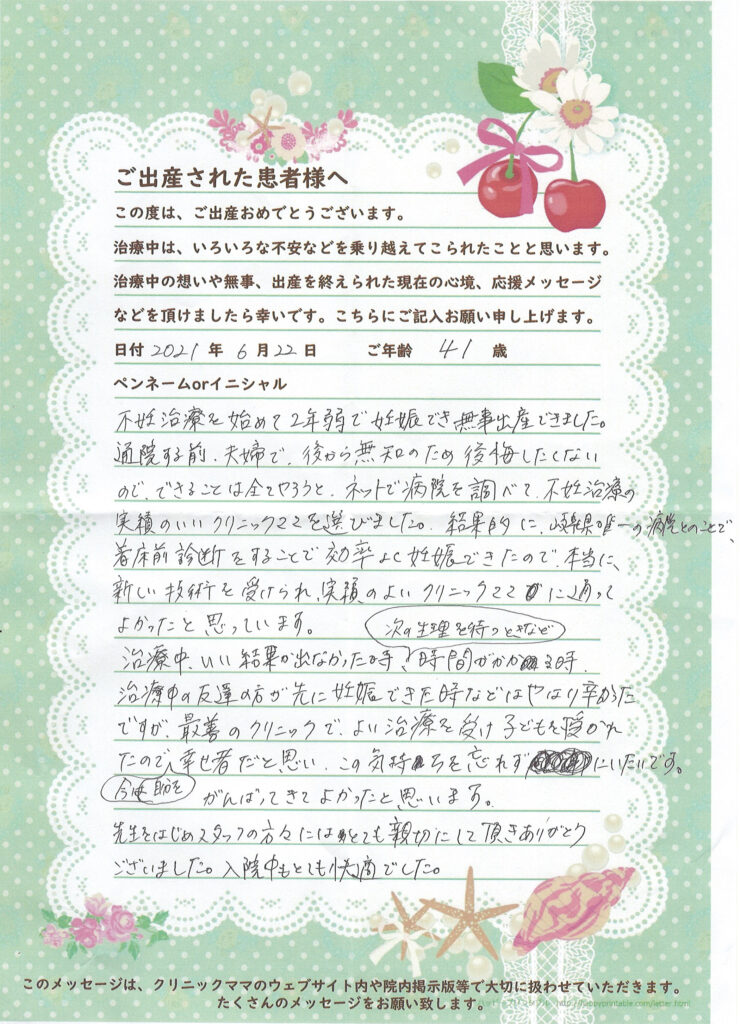 ご出産された患者様へ
この度は、ご出産おめでとうございます。
治療中は、いろいろな不安などを乗り越えてこられたことと思います。
治療中の想いや無事、出産を終えられた現在の心境、応援メッセージ
などを頂けましたら幸いです。こちらにご記入お願い申し上げます。
日付 2021 年 6 月 22 日 ご年齢 41 歳
ペンネームorイニシャル
不妊治療を始めて2年弱で妊娠でき無事出産できました。
通院する前、夫婦で、後から無知のため後悔したくない
ので、できることは全てやろうと、ネットで病院を調べて、不妊治療の
実績のいいクリニックママを選びました。結果的に、岐阜県唯一の病院とのことで、
着床前診断をすることで効率よく妊娠できたので、本当に、
新しい技術を受けられ、実績のよいクリニックママに通って
よかったと思っています。
次の生理を待つときなど
治療中、いい結果が出なかった時、時間がかかる時、
治療中の友達の方が先に妊娠できた時などはやはり辛かった
ですが、最善のクリニックで、よい治療を受け子どもを授かれ
たので、幸せ者だと思い、この気持ちを忘れずにいたいです。
がんばってきてよかったと思います。
先生をはじめスタッフの方々にはとても親切にして頂きありがとう
ございました。入院中もとても快適でした。
このメッセージは、クリニックママのウェブサイト内や院内掲示版等で大切に扱わせていただきます。
たくさんのメッセージをお願い致します。
http://happyprintable.com/letter.html